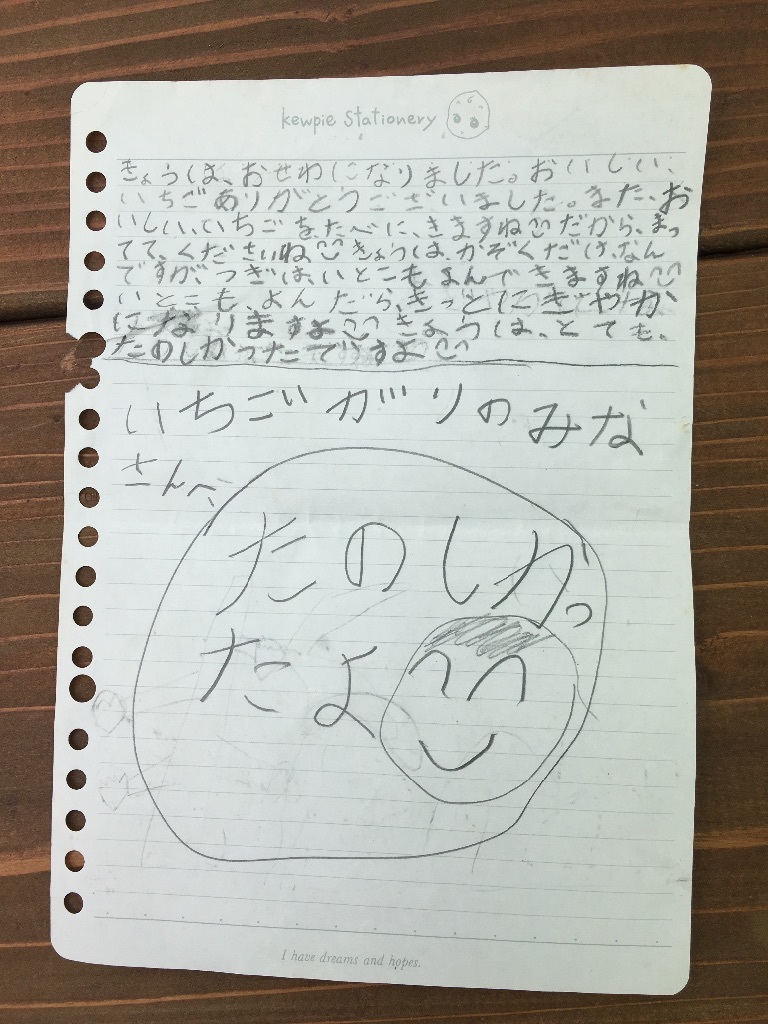 kewpie Stationery
きょうは、おせわになりました。おいしい、
いちごありがとうございました。また、お
いしい、いちごをたべに、きますね だから、まっ
てて、くださいね きょうは、かぞくだけ、なん
ですが、つぎは、いとこもよんできますね
いとこも、よんだら、きっとにぎやか
になりますよ きょうは、とても、
たのしかったですよ
いちごがりのみな
さんへ
たのしかっ
たよ
I have dreams and hopes.